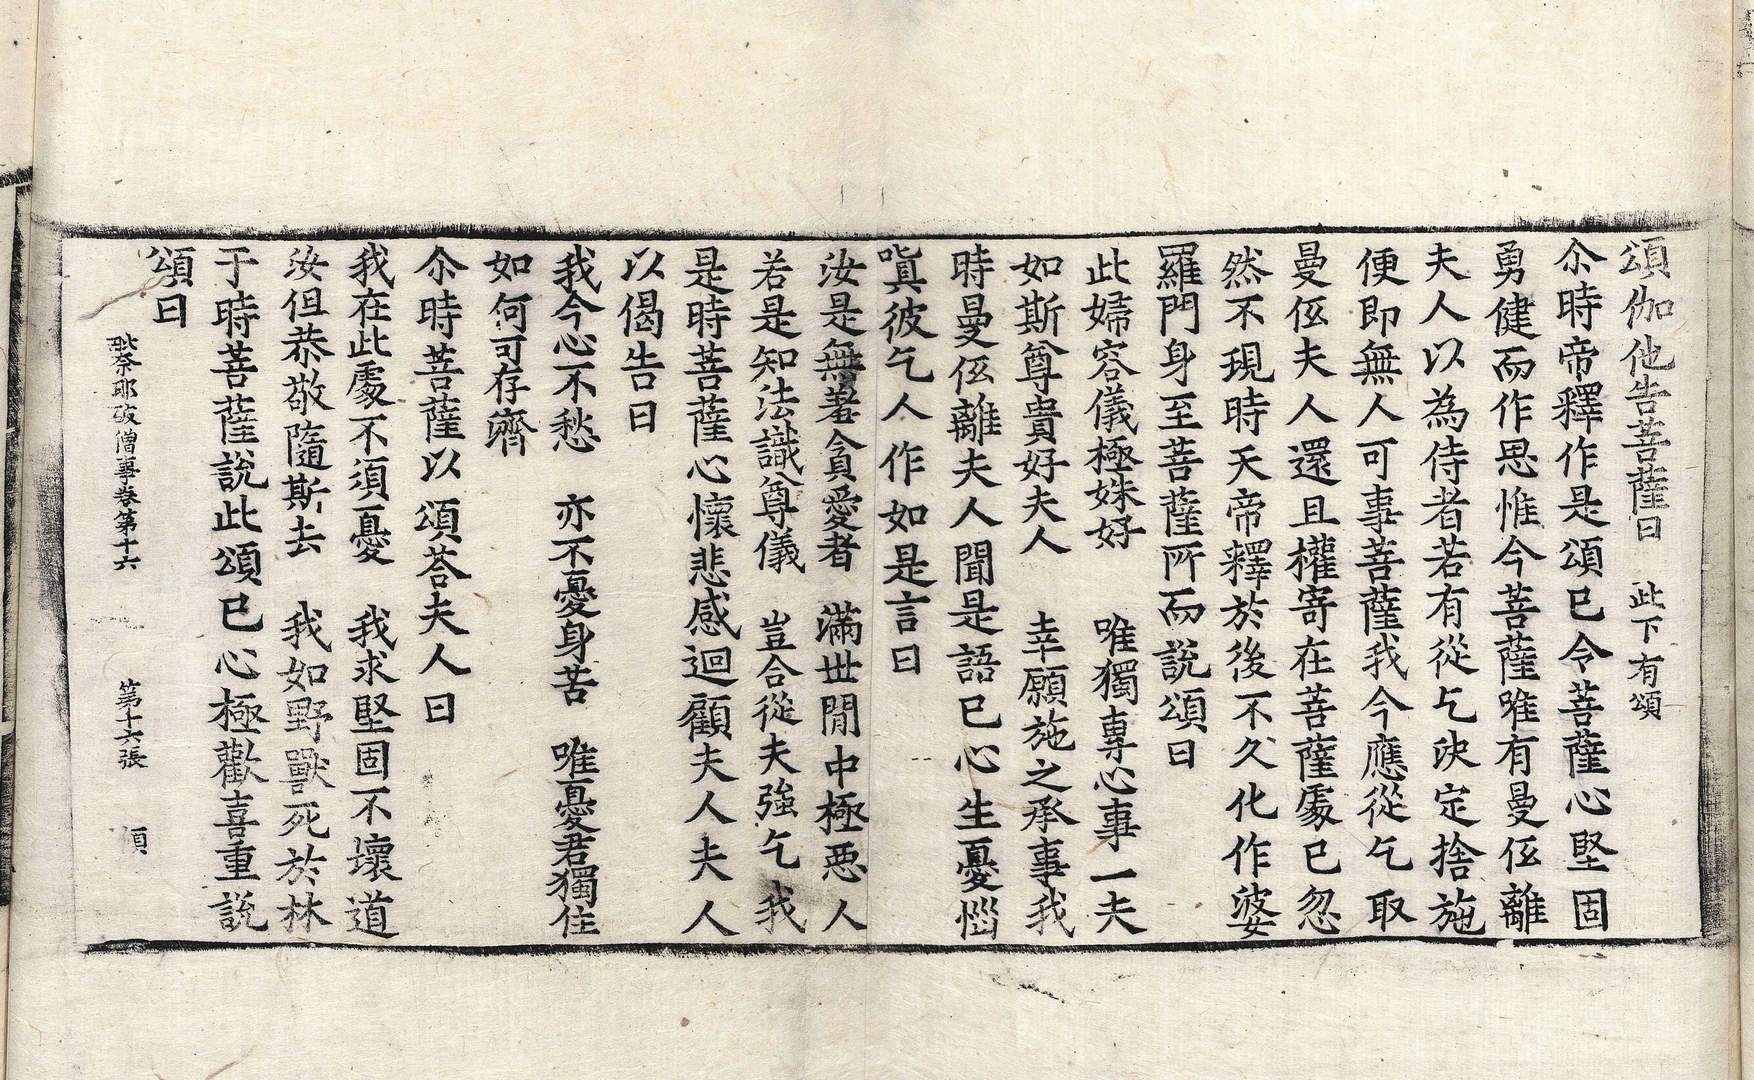 頌伽他告菩薩曰　此下有頌
尒時帝釋作是頌已令菩薩心堅固
勇健而作思惟今菩薩唯有曼伍離
夫人以為侍者若有從乞決定捨施
便即無人可事菩薩我今應從乞取
曼伍夫人還且權寄在菩薩處已忽
然不現時天帝釋於後不久化作婆
羅門身至菩薩所而說頌曰
此婦容儀極姝好　唯獨專心事一夫
如斯尊貴好夫人　幸願施之承事我
時曼伍離夫人聞是語已心生憂惱
嗔彼乞人作如是言曰
汝是無羞貪愛者　滿世閒中極惡人
若是知法識尊儀　豈合從夫強乞我
是時菩薩心懷悲感迴顧夫人夫人
以偈告曰
我今心不愁　亦不憂身苦　唯憂君獨住
如何可存濟
尒時菩薩以頌荅夫人曰
我在此處不須憂　我求堅固不壞道
汝但恭敬隨斯去　我如野獸死於林
于時菩薩說此頌已心極歡喜重說
頌曰
毗奈耶破僧事卷第十六　第十六張　頂